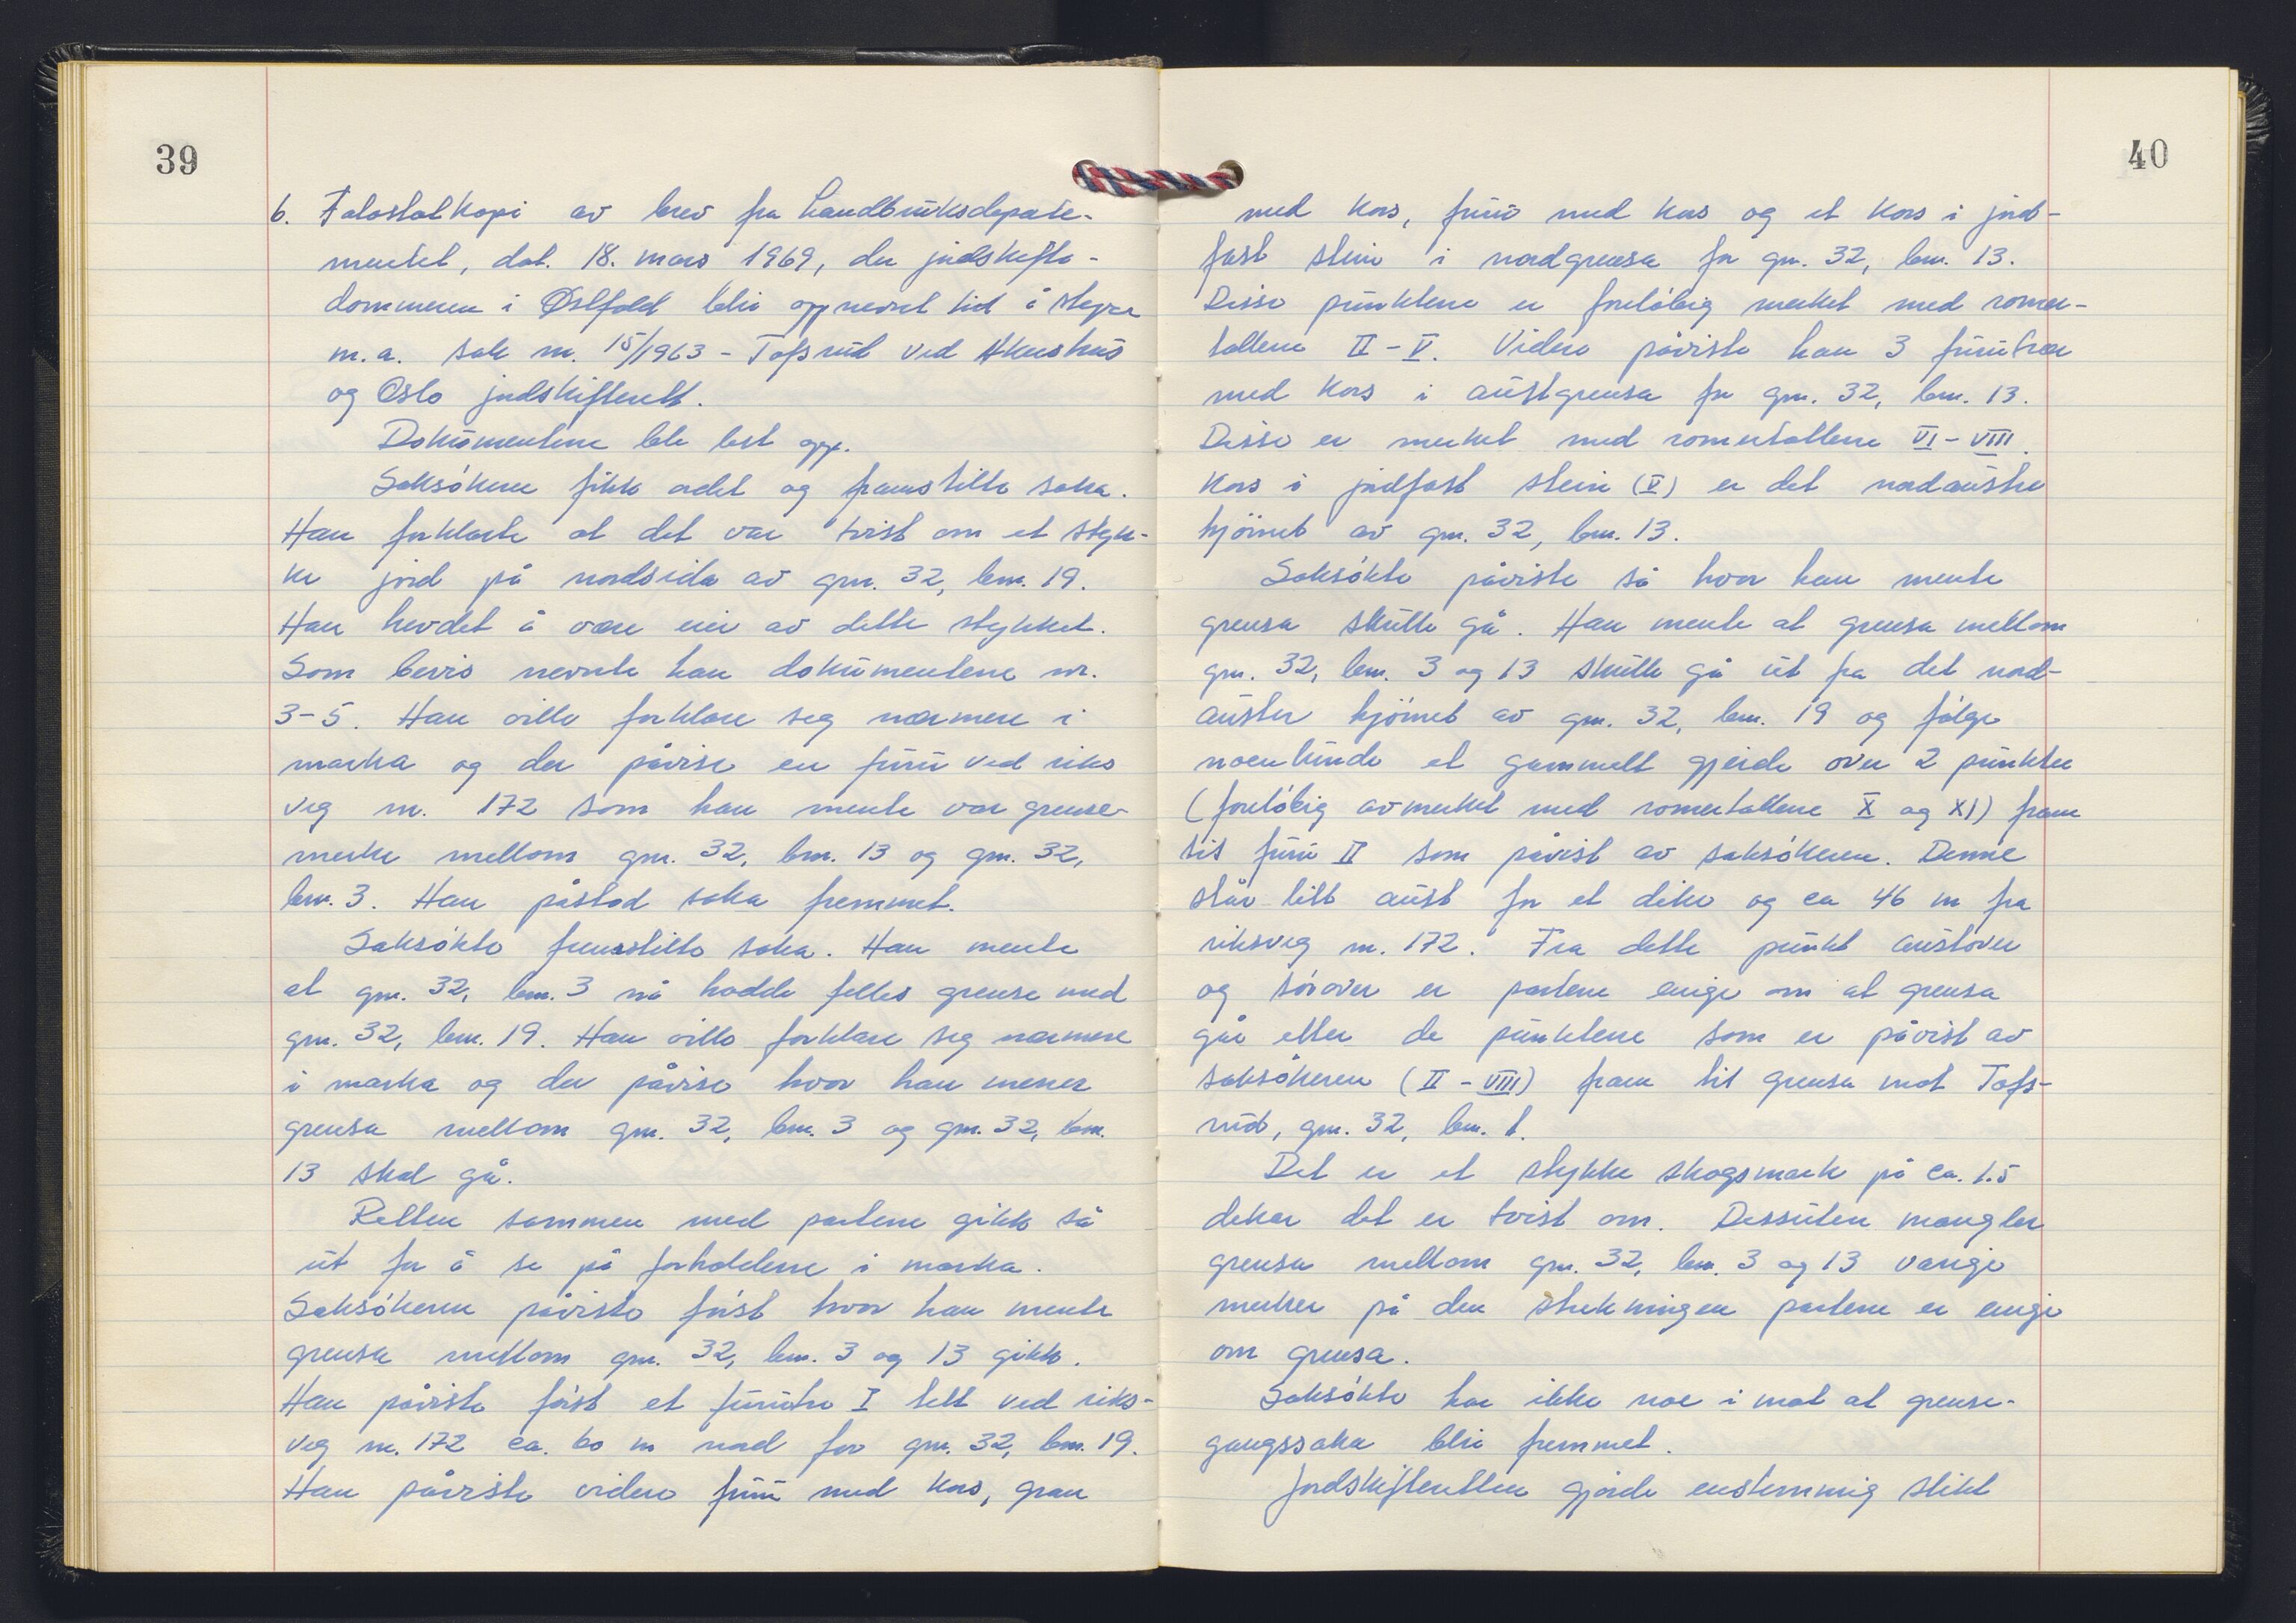 39
6. Fotostatkopi av brev fra Landbruksdeparte-
mentet, dat. 18. mars 1969, der jordskifte-
dommeren i Østfold blir oppnevnt til å styre
m.a. sak nr. 15/1963 - Tofsrud ved Akershus
og Oslo jordskifterett.
Dokumentene ble lest opp.
Saksøkeren fikk ordet og framstilte saka.
Han forklarte at det var tvist om et styk-
ke jord på nordsida av gnr. 32, bnr. 19.
Han hevdet å være eier av dette stykket.
Som bevis nevnte han dokumentene nr.
3-5. Han ville forklare seg nærmere i
marka og der påvise en furu ved riks
veg nr. 172 som han mente var grense-
merke mellom gnr. 32, bnr. 13 og gnr. 32,
bnr. 3. Han påstod saka fremmet.
Saksøkte framstilte saka. Han mente
at gnr. 32, bnr. 3 nå hadde felles grense med
gnr. 32, bnr. 19. Han ville forklare seg nærmere
i marka og der påvise hvor han mener
grensa mellom gnr. 32, bnr. 3 og gnr. 32, bnr.
13 skal gå.
Retten sammen med partene gikk så
ut for å se på forholdene i marka.
Saksøkeren påviste først hvor han mente
grensa mellom gnr. 32, bnr. 3 og 13 gikk.
Han påviste først et furutre I tett ved riks-
veg nr. 172 ca. 60 m nord for gnr. 32, bnr. 19.
Han påviste videre furu med kors, gran
40
med kors, furu med kors og et kors i jord-
fast stein i nordgrensa for gnr. 32, bnr. 13.
Disse punktene er foreløbig merket med romer-
tallene II - V. Videre påviste han 3 furutrær
med kors i austgrensa for gnr. 32, bnr. 13.
Disse er merket med romertallene VI - VIII.
Kors i jordfast stein (V) er det nordaustre
hjørnet av gnr. 32, bnr. 13.
Saksøkte påviste så hvor han mente
grensa skulle gå. Han mente at grensa mellom
gnr. 32, bnr. 3 og 13 skulle gå ut fra det nord-
austre hjørnet av gnr. 32, bnr. 19 og følge
noenlunde et gammelt gjerde over 2 punkter
(foreløbig avmerket med romertallene X og XI) fram
til furu II som påvist av saksøkeren. Denne
står litt aust for et dike og ca 46 m fra
riksveg nr. 172. Fra dette punkt austover
og sørover er partene enige om at grensa
går etter de punktene som er påvist av
saksøkeren (II - VIII) fram til grensa mot Tofs-
rud, gnr. 32, bnr. 1.
Det er et stykke skogsmark på ca. 1.5
dekar det er tvist om. Dessuten mangler
grensa mellom gnr. 32, bnr. 3 og 13 varige
merker på den strekningen partene er enige
om grensa.
Saksøkte har ikke noe i mot at grense-
gangssaka blir fremmet.
Jordskifteretten gjorde enstemmig slikt